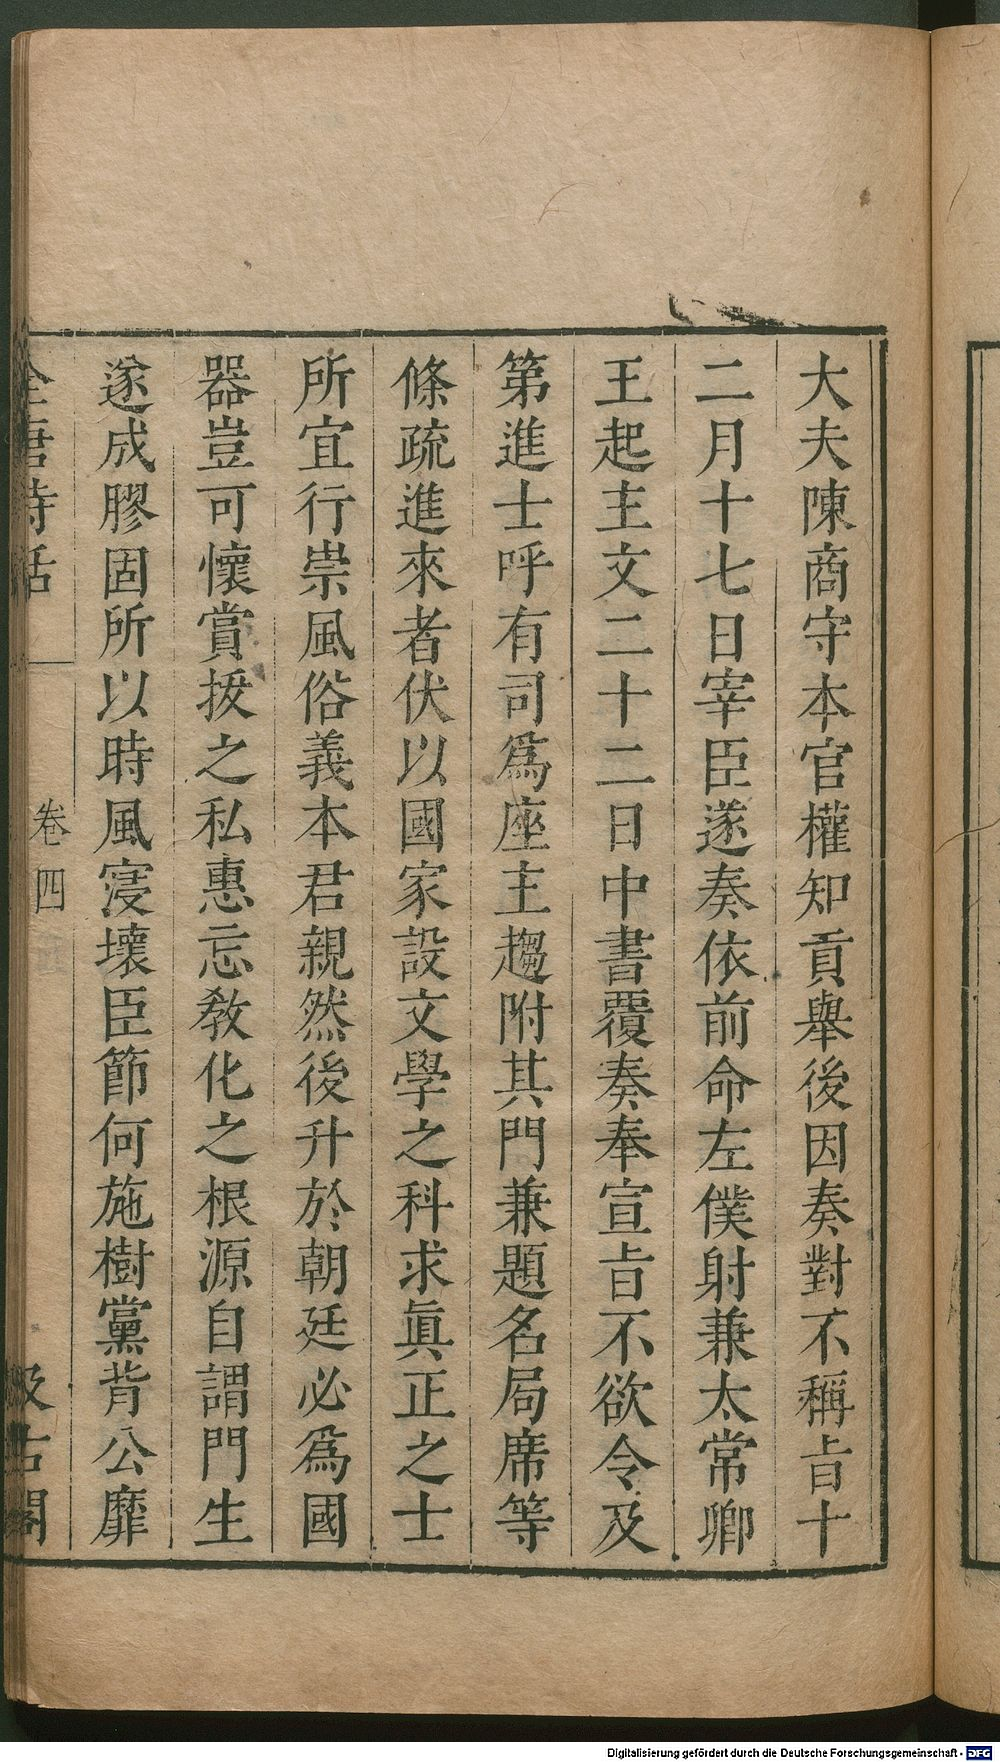 大夫陳商守本官權知貢舉後因奏對不稱㫖十
二月十七日宰臣遂奏依前命左僕射兼太常卿
王起主文二十二日中書覆奏奉宣㫖不欲令及
第進士呼有司爲座主趨附其門兼題名局席等
條疏進來者伏以國家設文學之科求眞正之士
所宜行崇風俗義本君親然後升於朝廷必爲國
器豈可懷賞拔之私惠忘敎化之根源自謂門生
遂成膠固所以時風寖壞臣節何施樹黨背公靡
全唐詩話 卷四 汲古閣
Digitalisierung gefördert durch die Deutsche Forschungsgemeinschaft - DFG